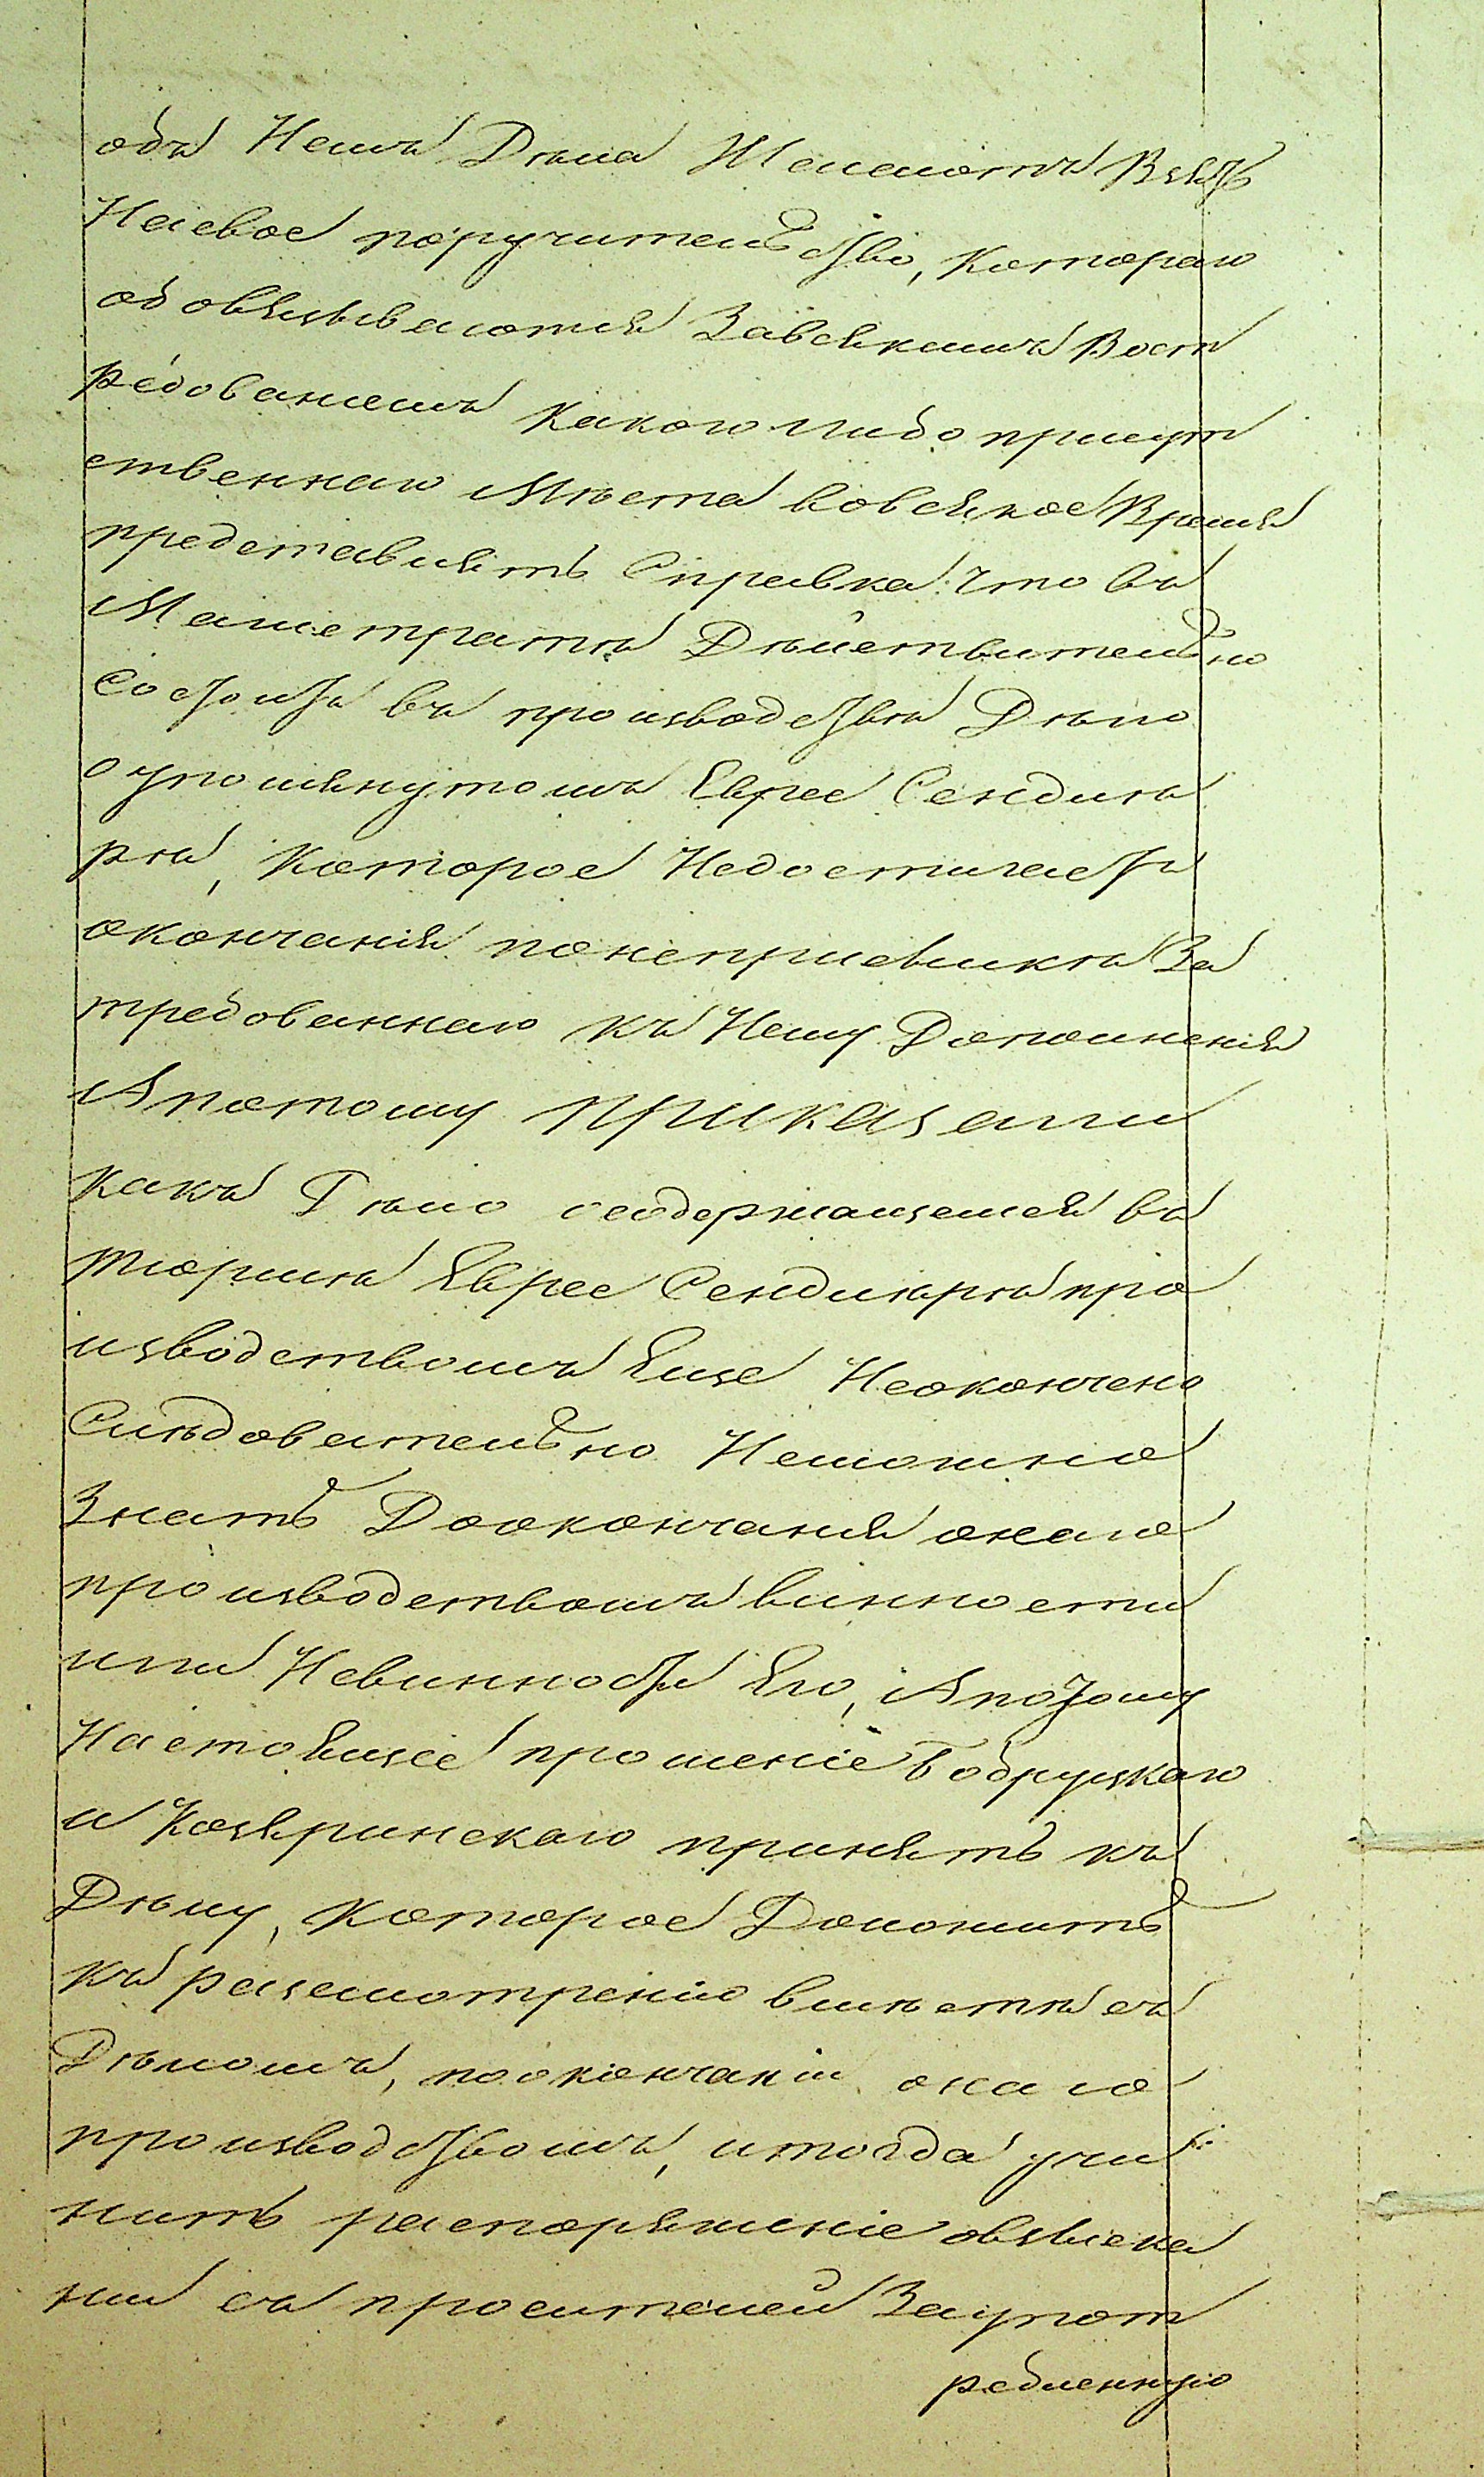 объ Немъ Дѣла Желаютъ Взять
На свое поручительство, Котораго
обовязываются Завсякимъ Вост
ребованіемъ Какого либо присут
ственнаго Мѣста вовсякое Время
представить Справка: Что въ
Магистратѣ Дѣйствительно
Состоитъ въ производствѣ Дѣло
о упомянутомъ Еврее Сендилѣ
рѣ, Которое Недостигаетъ
окончанія понеприсылкѣ За
требованнаго къ Нему Дополненія
Апотому Приказали
какъ Дѣло о содержащемся въ
тюрмѣ Еврее Сендлѣрѣ про
изводствомъ Еще Неокончено
Слѣдовательно Неможно
Знать Доокончанія онаго
производствомъ винности
или Невинности Его, Апотому
Настоящее прошеніе Бобруцкаго
и Козяринскаго принять къ
Дѣлу, Которое Доложить
къ разсмотренію вмѣстѣ съ
Дѣломъ, поокончаніи онаго
производствомъ, итогда учи
нить распоряженіе овзыска
ніи съ просителей Заупот
ребленную